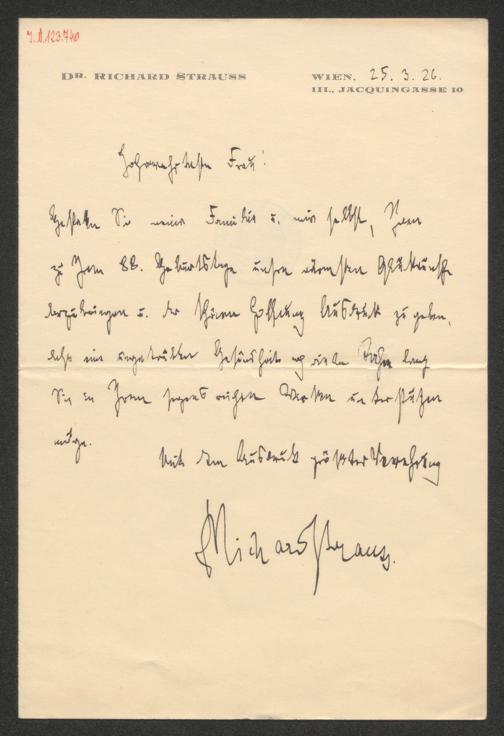 J.N.123.740
DR. RICHARD STRAUSS
WIEN, 25. 3. 26.
III., JACQUINGASSE 10
Hochverehrteste Frau!
Gestatten Sie meiner Familie u. mir selbst, Ihnen
zu Ihrem 88. Geburtstage unsre wärmsten Glückwünsche
darzubringen u. der schönen Hoffnung Ausdruck zu geben,
daß eine ungetrübte Gesundheit noch viele Jahre lang
Sie in Ihrem segensreichen Wirken unterstützen
möge.
Mit dem Ausdruck größter Verehrung
Richard Strauss.